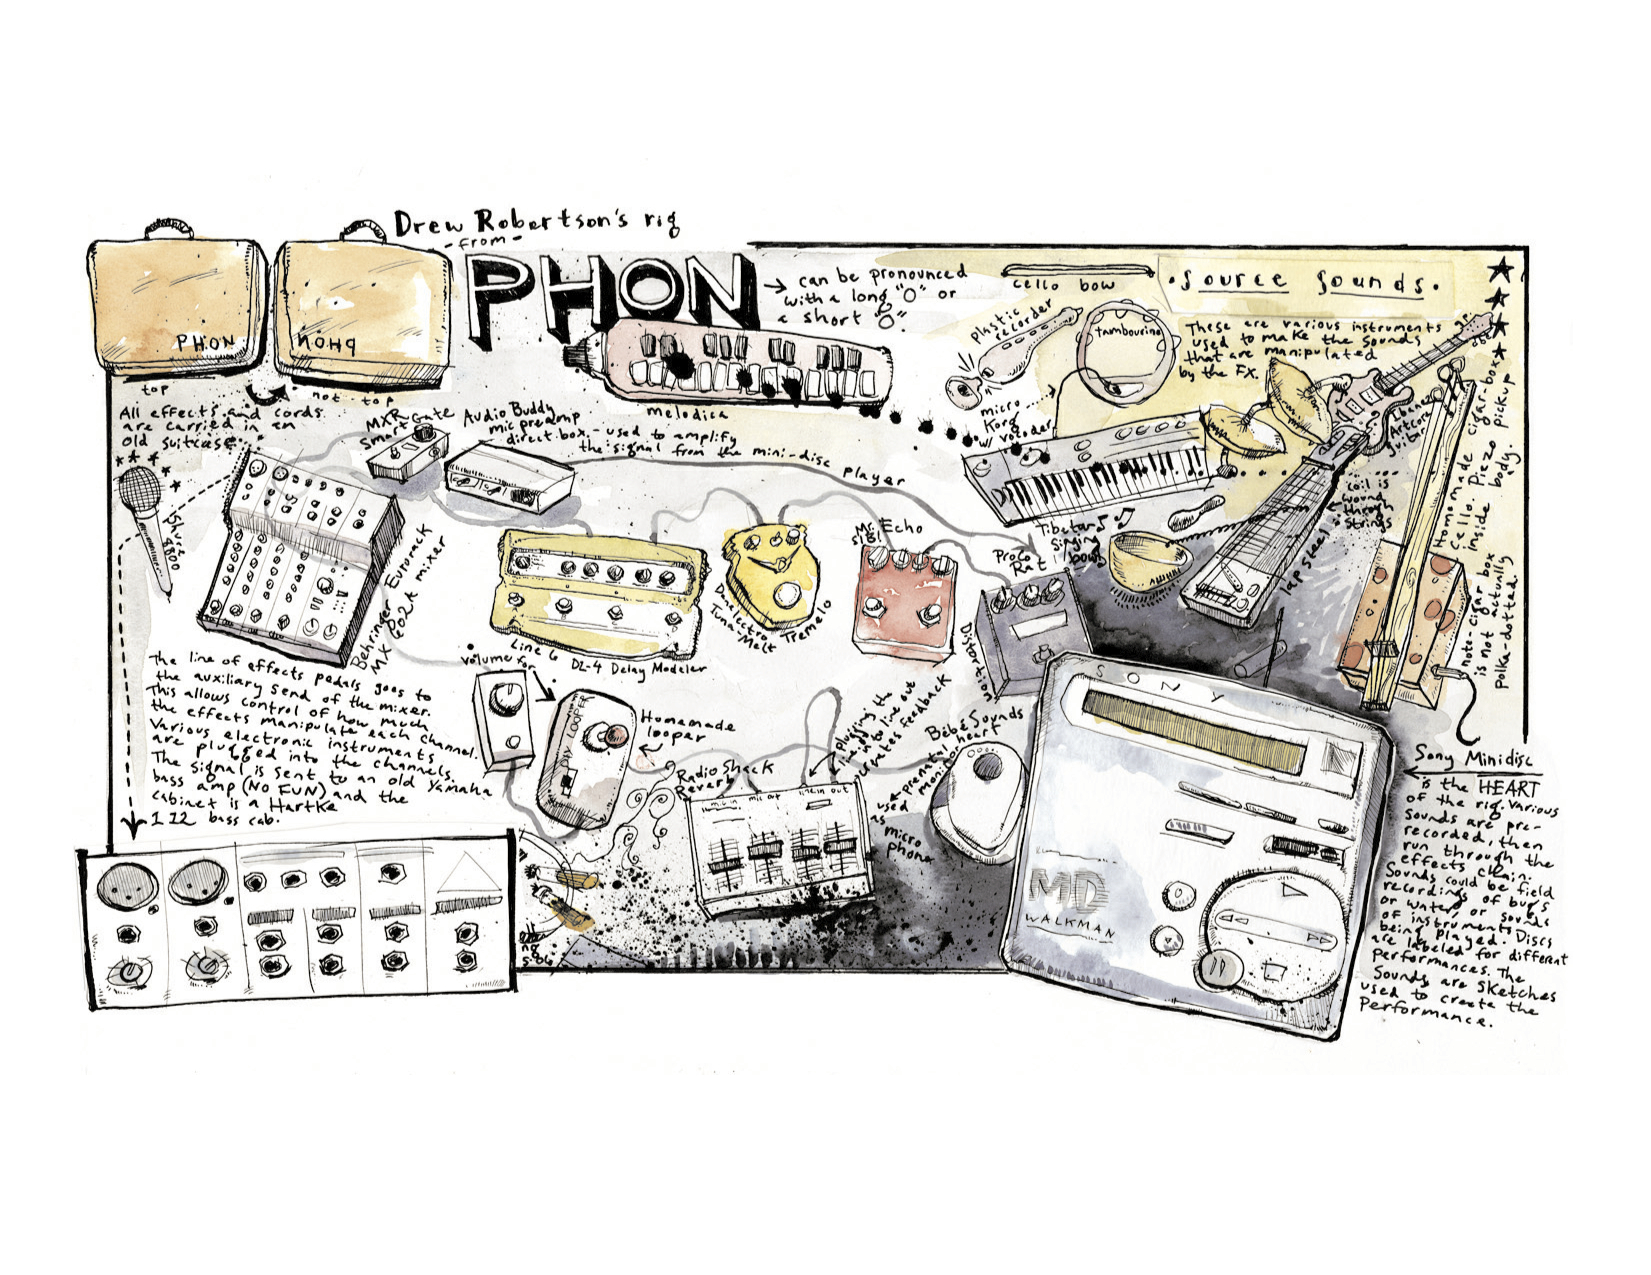 Drew Robertson's rig
- from -
PHON
→ can be pronounced
with a long "O" or
a short "O".
PHON
PHON
top
not-top
All effects and cords
are carried in an
old suitcase.
cello bow
.Source Sounds.
Plastic
recorder
tambourine
These are various instruments
used to make the sounds
that are manipulated
by the FX.
melodica
micro
Korg
w/ vocoder
MXR
Smart Gate
Audio Buddy
mic preamp
direct box - used to amplify
the signal from the mini-disc player
Ibanez
Artcore
guitar
Homomade cigar-box
cello. Piezo pickup
inside body.
note-cigar box
is not actually
polka-dotted.
coil is
wound
through
strings
lap steel
Tibetan
Singing
bowl
Shure
4800
Behringer Eurorack
MX 602A mixer
Line 6 DL-4 Delay Modeler
Danelectro
Tuna-Melt
Tremelo
Mr. Echo
Proco
Rat
Distortion
The line of effects pedals goes to
the auxiliary send of the mixer.
This allows control of how much
the effects manipulate each channel.
Various electronic instruments
are plugged into the channels.
The signal is sent to an old Yamaha
bass amp (NO FUN) and the
cabinet is a Hartke
112 bass cab.
volume for
Homemade
looper
LOOPER
Radio Shack
Reverb
mic in
mic out
line in out
plugging the
line out
creates feedback
Bébé Sounds
prenatal heart
monitor
used
as
micro
phone
SONY
MD
WALKMAN
Sony Minidisc
is the HEART
of the rig. Various
sounds are pre-
recorded, then
run through the
effects chain.
Sounds could be field
recordings of bugs
or water, or sounds
of instruments
being played. Discs
are labeled for different
performances. The
sounds are sketches
used to create the
performance.